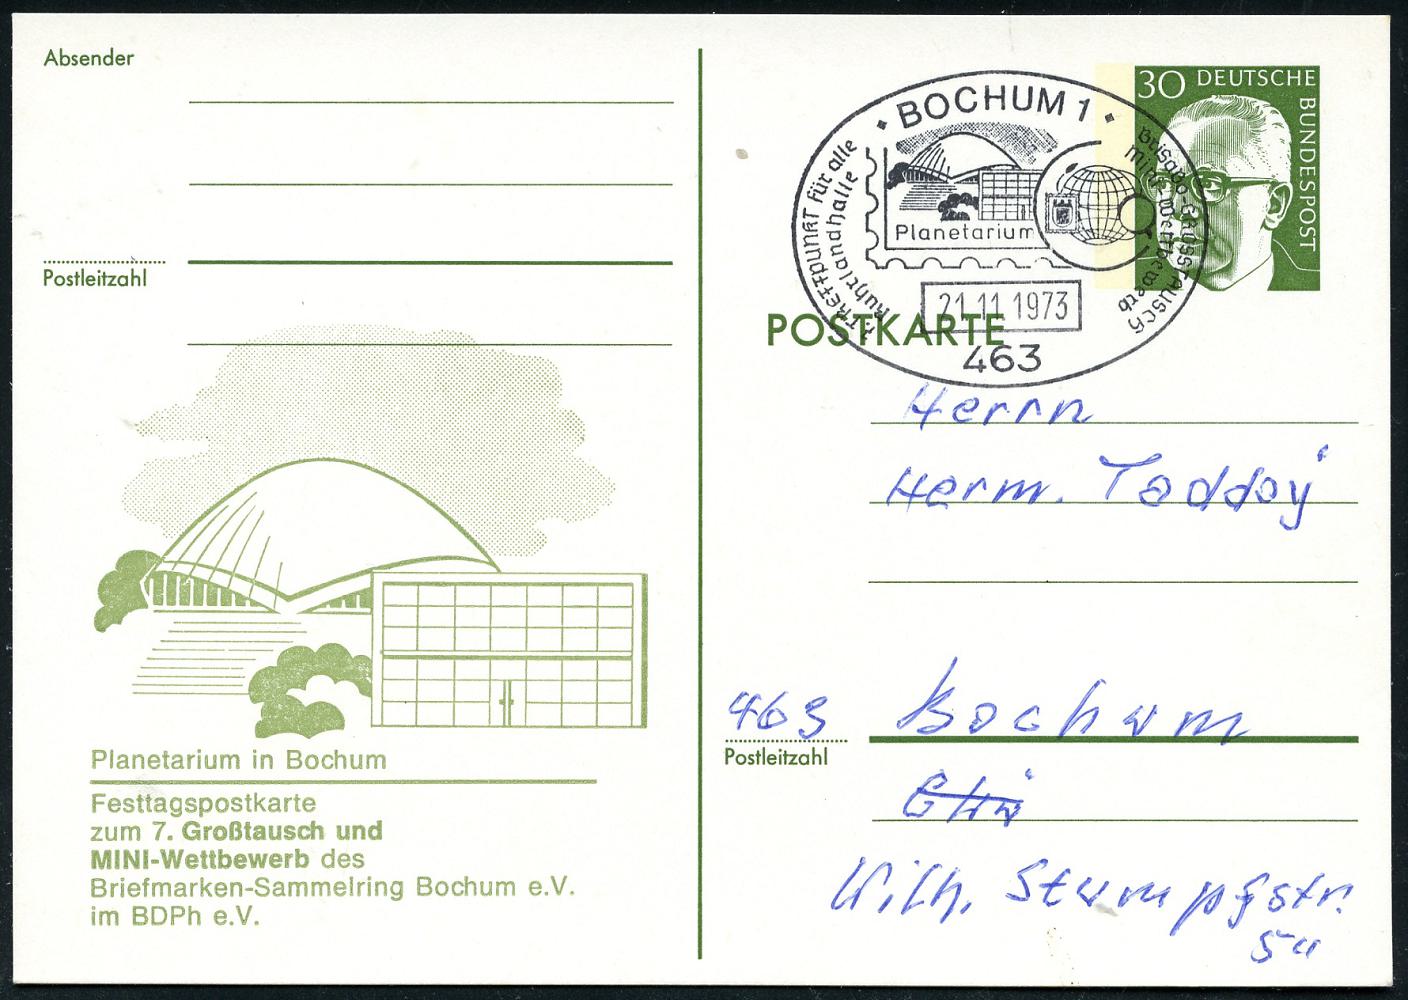 Absender
Postleitzahl
Planetarium in Bochum
Festtagspostkarte
zum 7. Großtausch und
MINI-Wettbewerb des
Briefmarken-Sammelring Bochum e.V.
im BDPh e.V.
30 DEUTSCHE
BUNDESPOST
BOCHUM 1
TREFFPUNKT für alle
Ruhrlandhalle
Planetarium
GROSSTAUSCH
Mini-Wettbewerb
21.11.1973
463
POSTKARTE
Herrn
Herm. Taddey
463 Bochum
Postleitzahl
Wilh. Stumpfstr.